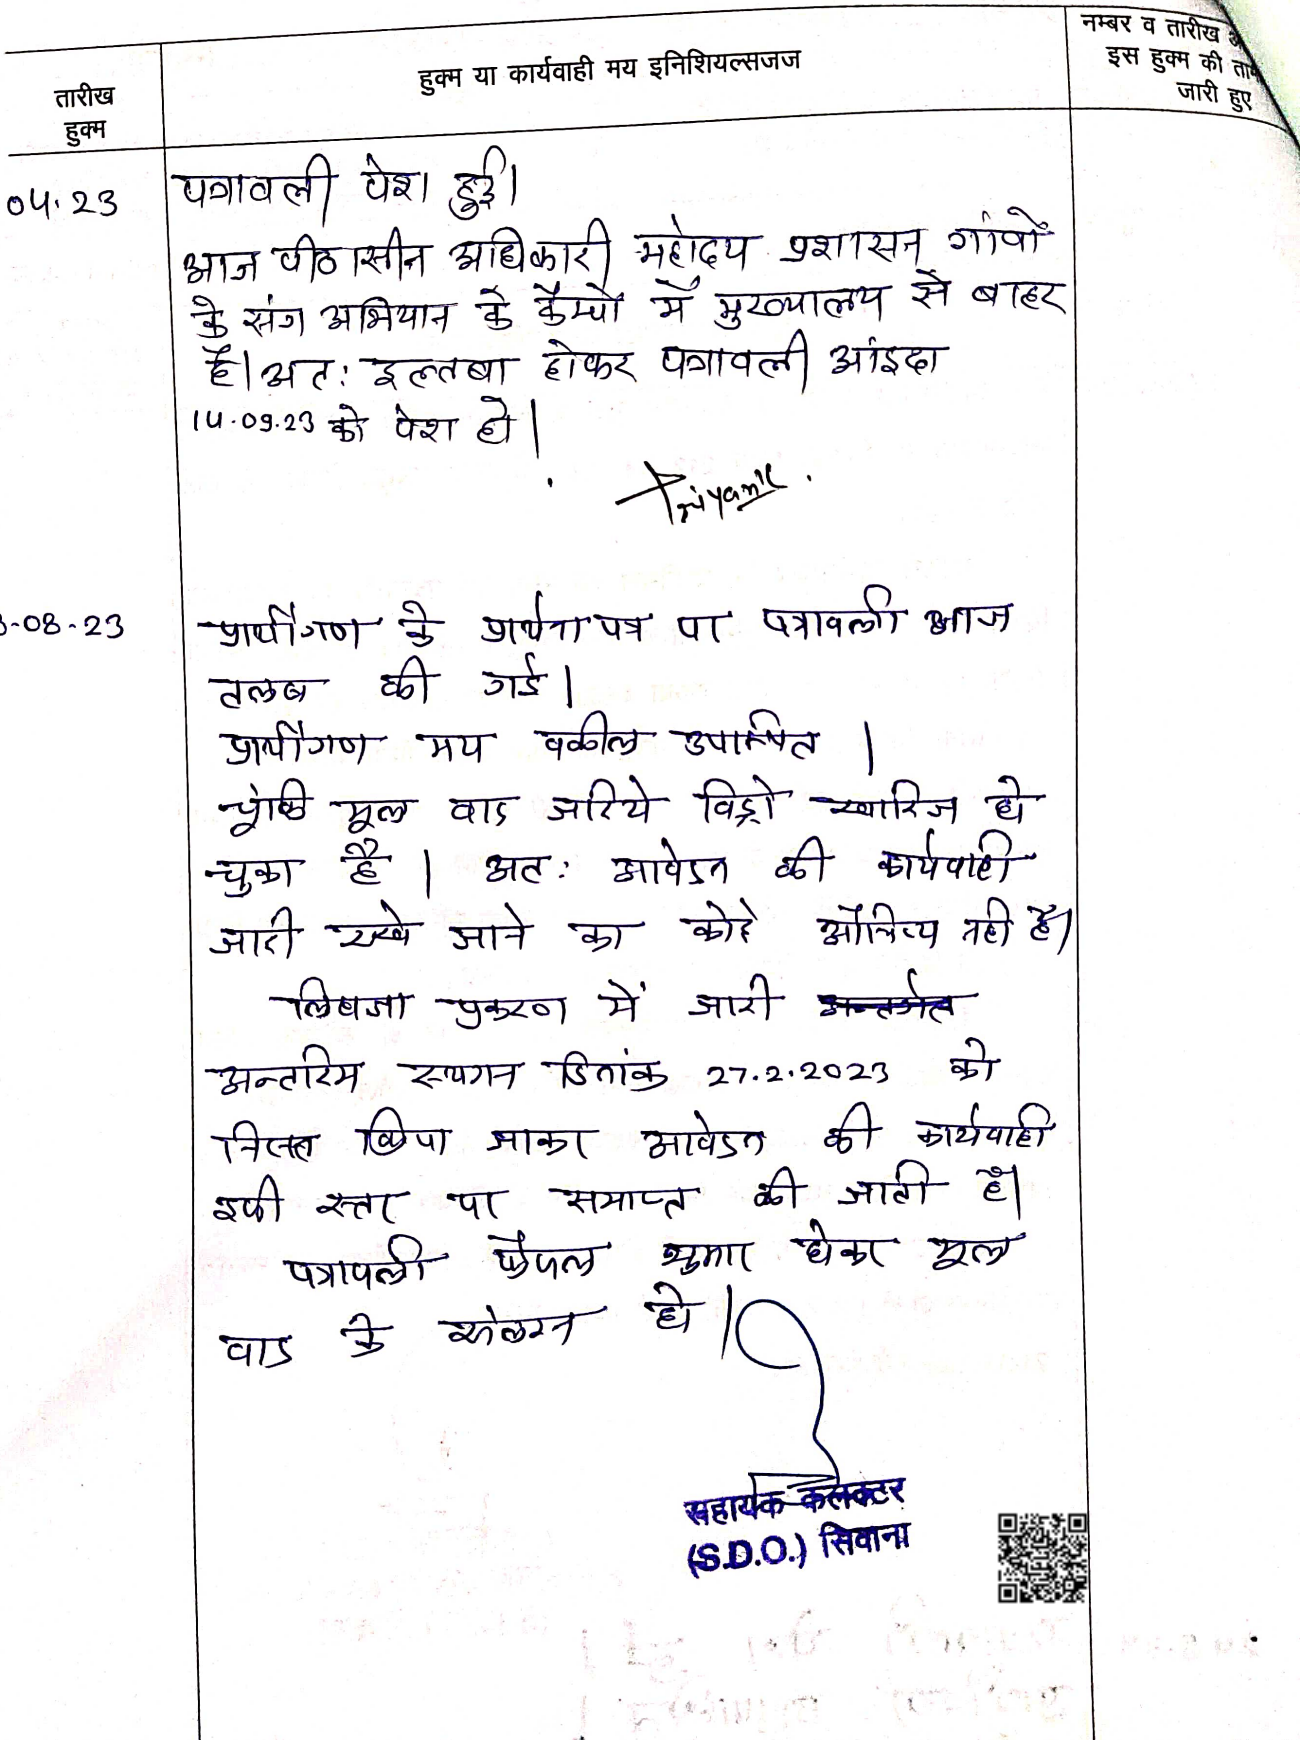 तारीख
हुक्म
हुक्म या कार्यवाही मय इनिशियल्सजज
नम्बर व तारीख
इस हुक्म की
जारी हुए
04.23
पत्रावली पेश हुई।
आज पीठासीन अधिकारी महोदय प्रशासन गांवों
के संग अभियान के कैम्पों में मुख्यालय से बाहर
है। अत: इल्तबा होकर पत्रावली आंइदा
14.09.23 को पेश हो।
Priyanik
-08-23
प्रार्थीगण के प्रार्थना पत्र पर पत्रावली आज
तलब की गई।
प्रार्थीगण मय वकील उपस्थित।
चूंकि मूल वाद जरिये विड्रो खारिज हो
चुका है। अत: आवेदन की कार्यवाही
जारी रखे जाने का कोई औचित्य नही है।
लिहाजा प्रकरण में जारी
अन्तरिम स्थगन दिनांक 27.2.2023 को
निरस्त किया जाकर आवेदन की कार्यवाही
इसी स्तर पर समाप्त की जाती है।
पत्रावली फैसल शुमार होकर मूल
वाद के संलग्न हो।
सहायक कलक्टर
(S.D.O.) सिवाना